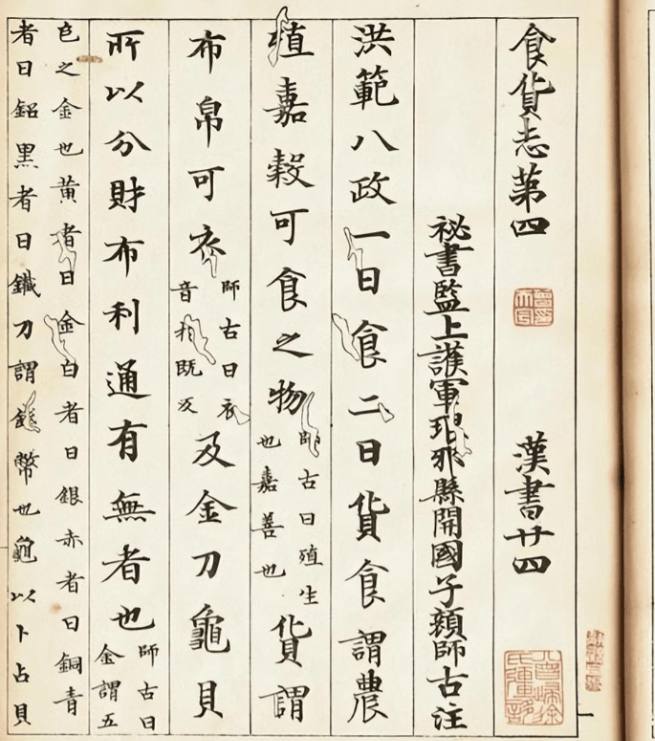 食貨志第四 漢書廿四
祕書監上護軍琅邪縣開國子顏師古注
洪範八政一曰食二曰貨食謂農
殖嘉穀可食之物師古曰殖生也嘉善也貨謂
布帛可衣師古曰衣音於既反及金刀龜貝
所以分財布利通有無者也師古曰金謂五
色之金也黃者曰金白者曰銀赤者曰銅青
者曰鉛黑者曰鐵刀謂錢幣也龜以卜占貝
一